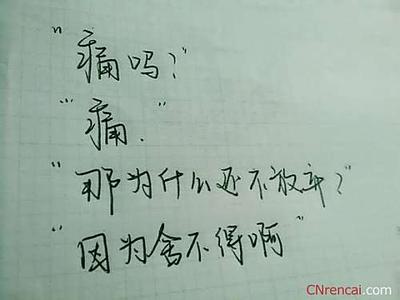 “痛吗？”
“痛.”
“那为什么还不放弃？”
“因为舍不得啊”
CNrencai.com